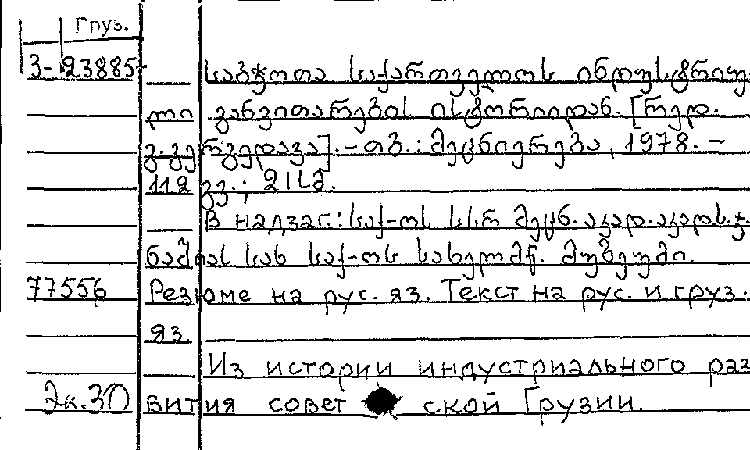 Груз.
3-23885 საბჭოთა საქართველოს ინდუსტრიუ
ლი განვითარების ისტორიიდან. [რედ.
გ. გერგედავა]. – თბ.: მეცნიერება, 1978. –
112 გვ.; 21სმ.
В надзаг.: საქ-ოს სსრ მეცნ. აკად. აკად. ს. ჯ
ნაშიას სახ საქ-ოს სახელმწ. მუზეუმი.
77556 Резюме на рус. яз. Текст на рус. и груз.
яз.
Из истории индустриального раз
Эк.3П вития совет ской Грузии.